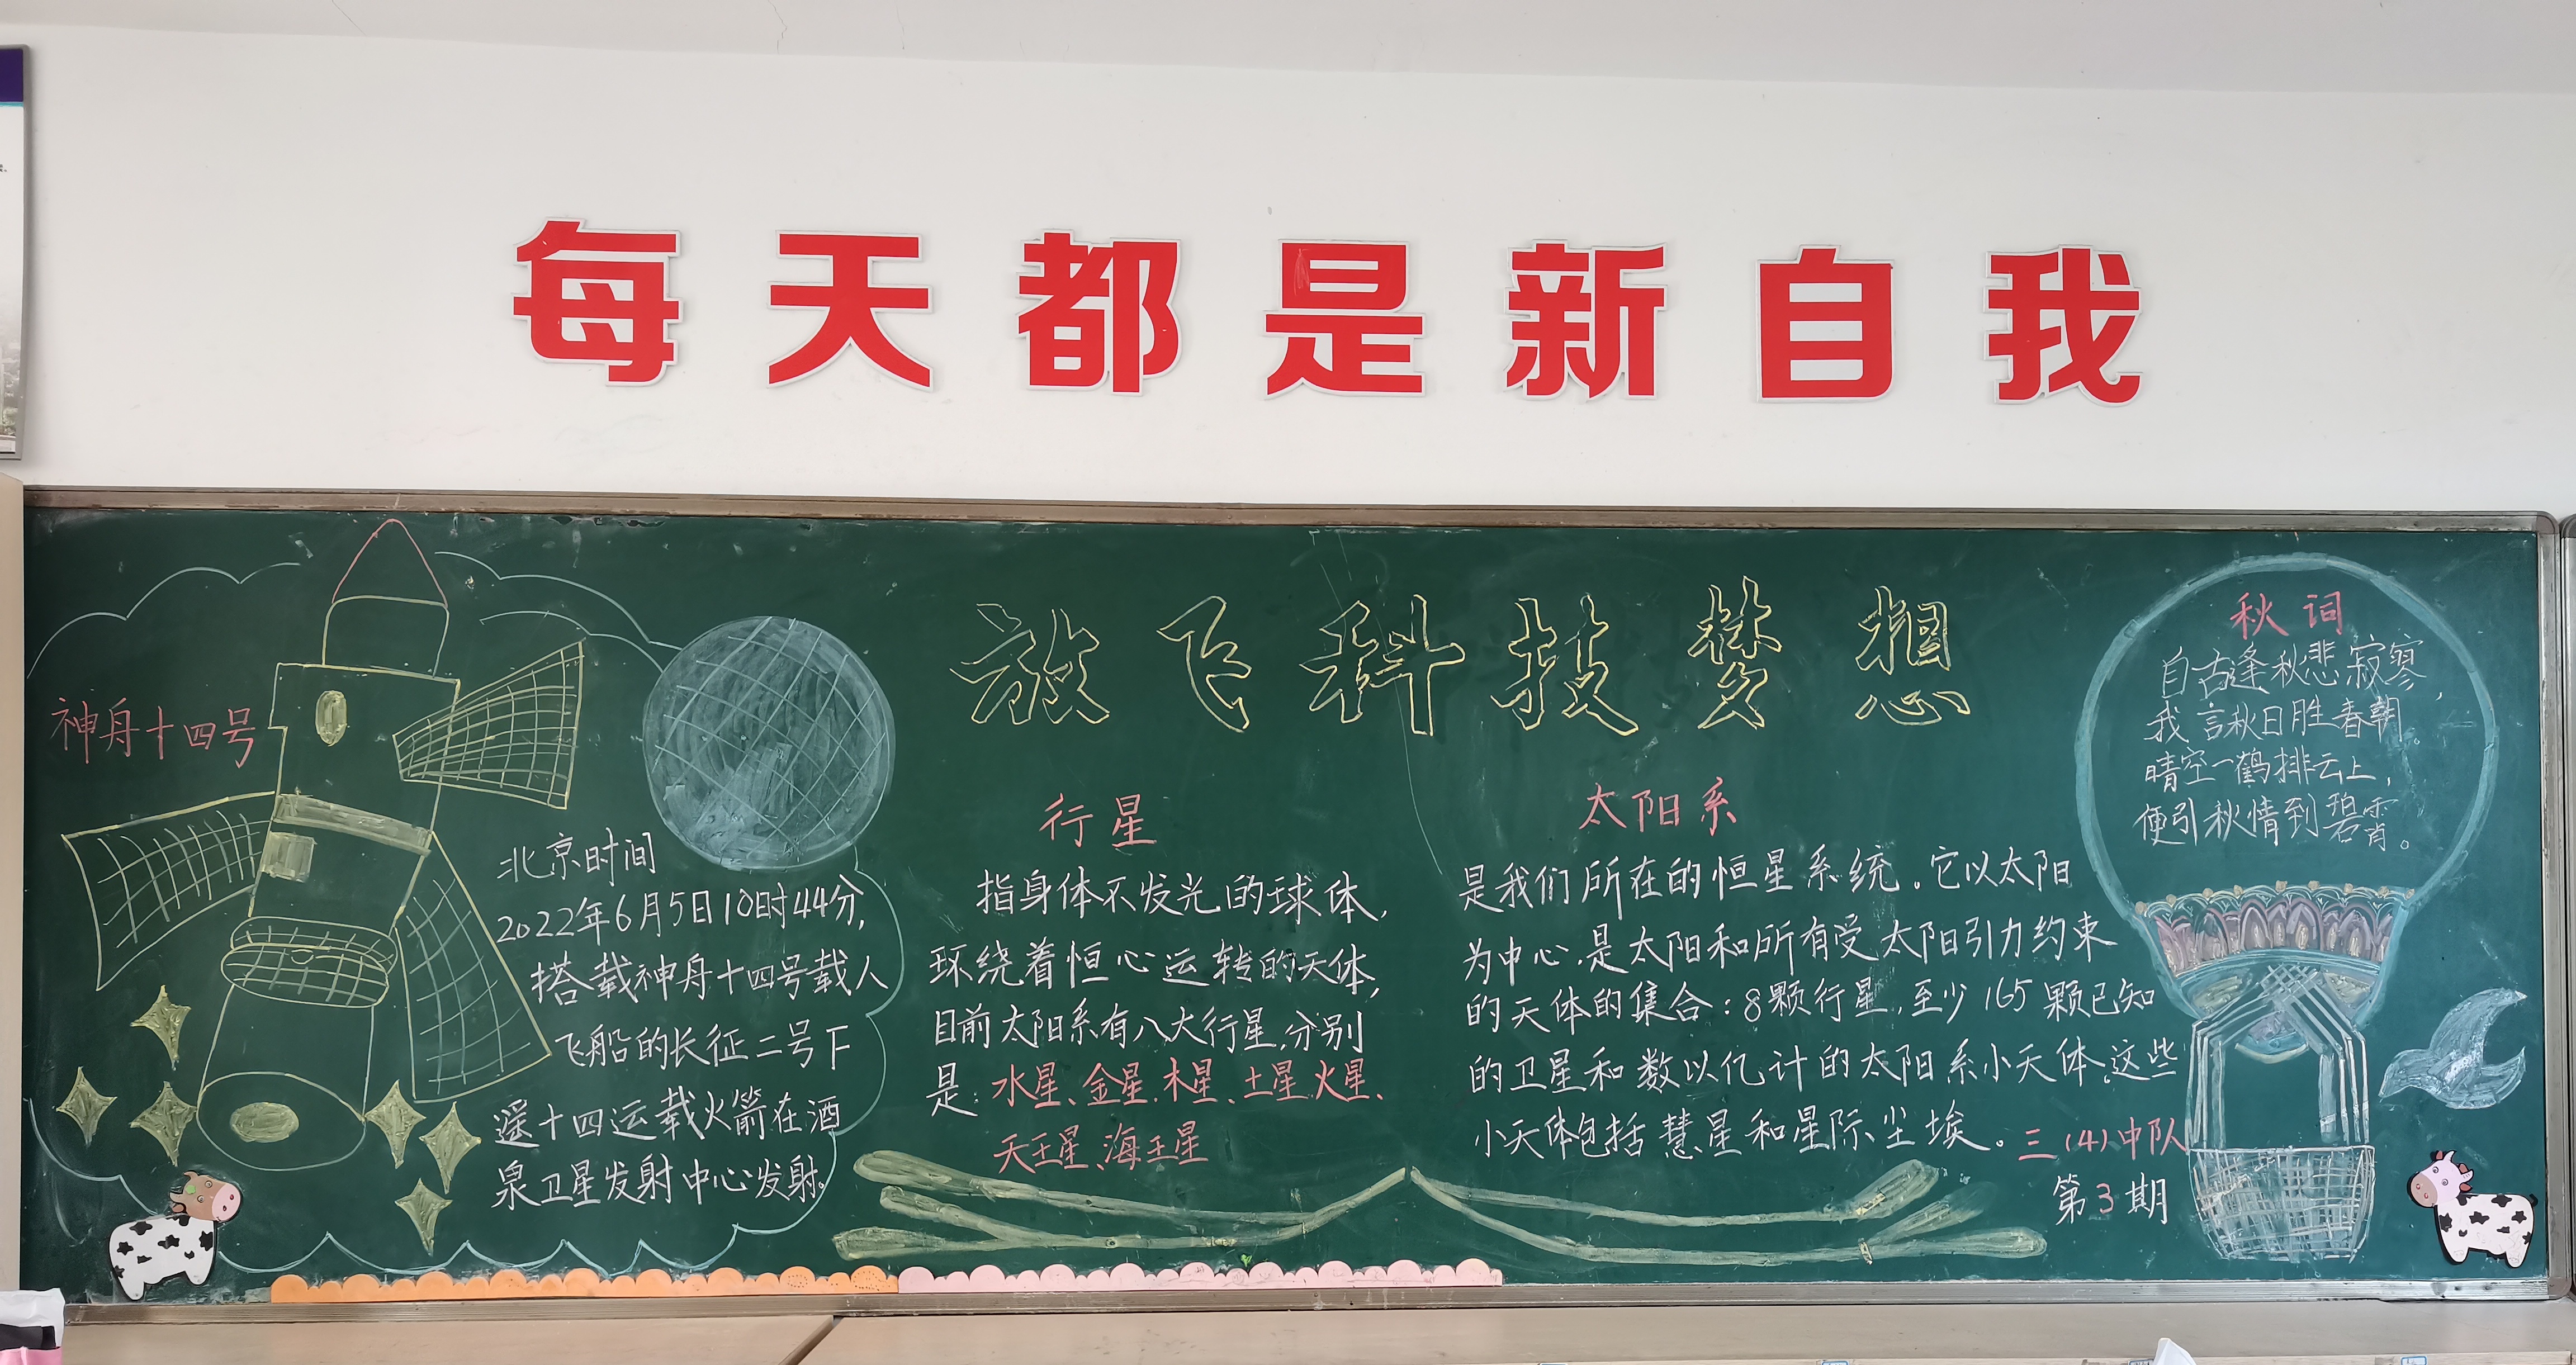 每天都是新自我
放飞科技梦想
神舟十四号
北京时间
2022年6月5日10时44分,
搭载神舟十四号载人
飞船的长征二号F
遥十四运载火箭在酒
泉卫星发射中心发射。
行星
指身体不发光的球体,
环绕着恒心运转的天体,
目前太阳系有八大行星,分别
是:水星、金星、木星、土星、火星、
天王星、海王星
太阳系
是我们所在的恒星系统。它以太阳
为中心,是太阳和所有受太阳引力约束
的天体的集合:8颗行星,至少165颗已知
的卫星和数以亿计的太阳系小天体。这些
小天体包括慧星和星际尘埃。
三(4)中队
第3期
秋词
自古逢秋悲寂寥,
我言秋日胜春朝。
晴空一鹤排云上,
便引秋情到碧霄。